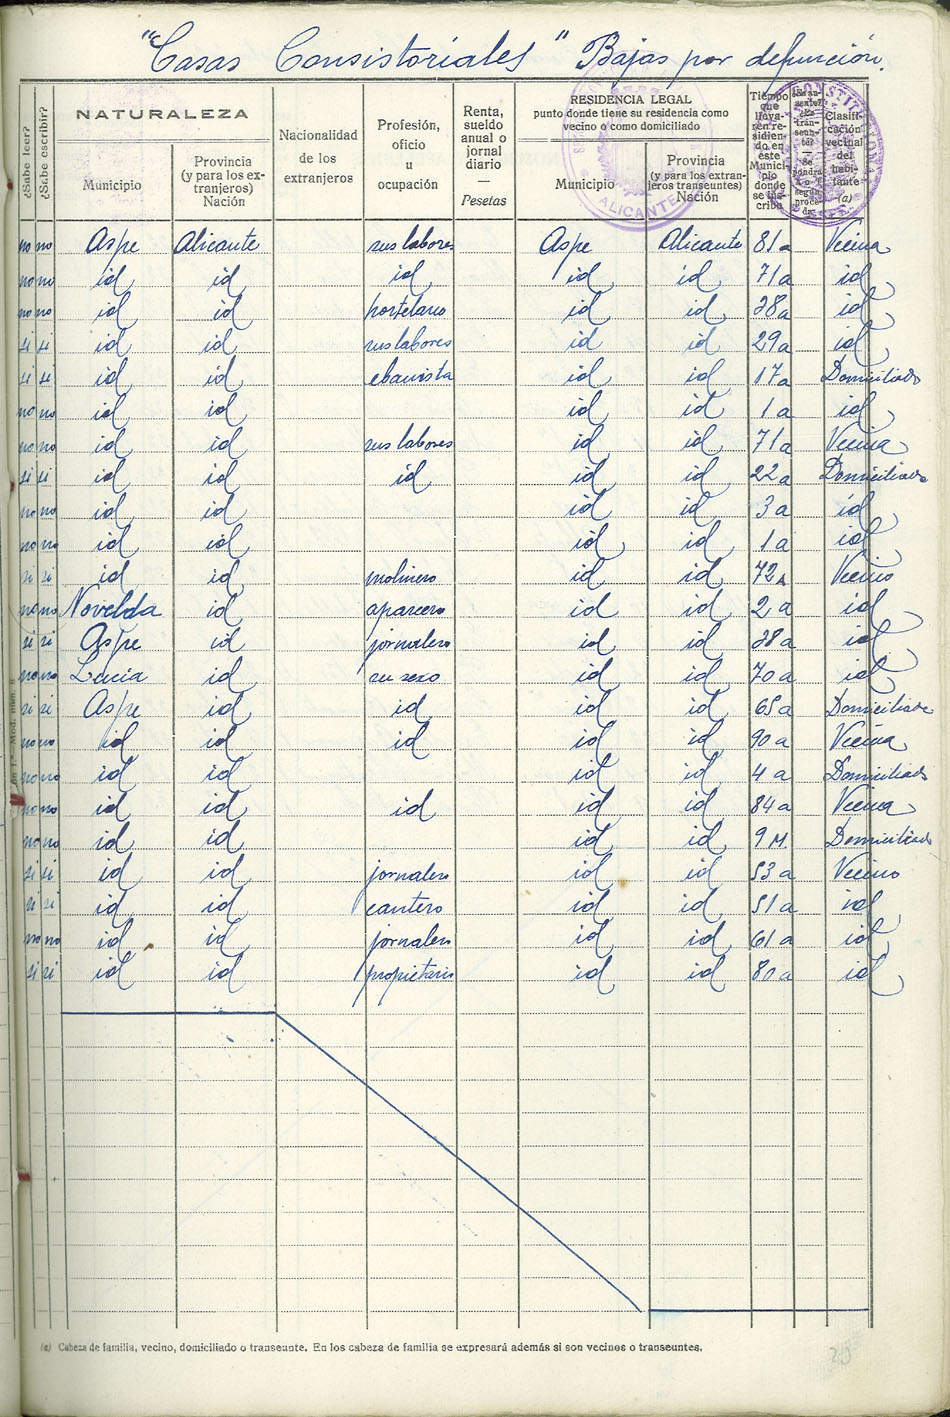 "Casas Consistoriales" Bajas por defunción.
¿Sabe leer?
¿Sabe escribir?
NATURALEZA
Municipio
Provincia (y para los ex-tranjeros) Nación
Nacionalidad de los extranjeros
Profesión, oficio u ocupación
Renta, sueldo anual o jornal diario — Pesetas
RESIDENCIA LEGAL
punto donde tiene su residencia como vecino o como domiciliado
Municipio
Provincia (y para los extran-jeros transeuntes) Nación
Tiempo que lleva-ren re-sidien-do en este Munici-pio donde se ins-cribe
Clasifi-cación vecinal del habi-tante (a)
ALICANTE
no no Aspe Alicante sus labores Aspe Alicante 81 a Vecina
no no id id id id id 71 a id
no no id id hortelano id id 38 a id
si si id id sus labores id id 29 a id
si si id id ebanista id id 17 a Domiciliado
no no id id id id 1 a id
no no id id sus labores id id 71 a Vecina
si si id id id id id 22 a Domiciliado
no no id id id id 3 a id
no no id id id id 1 a id
si si id id molinero id id 72 a Vecino
no no Novelda id aparcero id id 2 a id
si si Aspe id jornalero id id 38 a id
no no Lucia id su sexo id id 70 a id
si si Aspe id id id id 65 a Domiciliada
no no id id id id id 90 a Vecina
no no id id id id 4 a Domiciliado
no no id id id id id 84 a Vecina
no no id id id id 9 M. Domiciliado
si si id id jornalero id id 53 a Vecino
si si id id cantero id id 51 a id
no no id id jornalero id id 61 a id
si si id id propietario id id 80 a id
(a) Cabeza de familia, vecino, domiciliado o transeunte. En los cabeza de familia se expresará además si son vecinos o transeuntes.